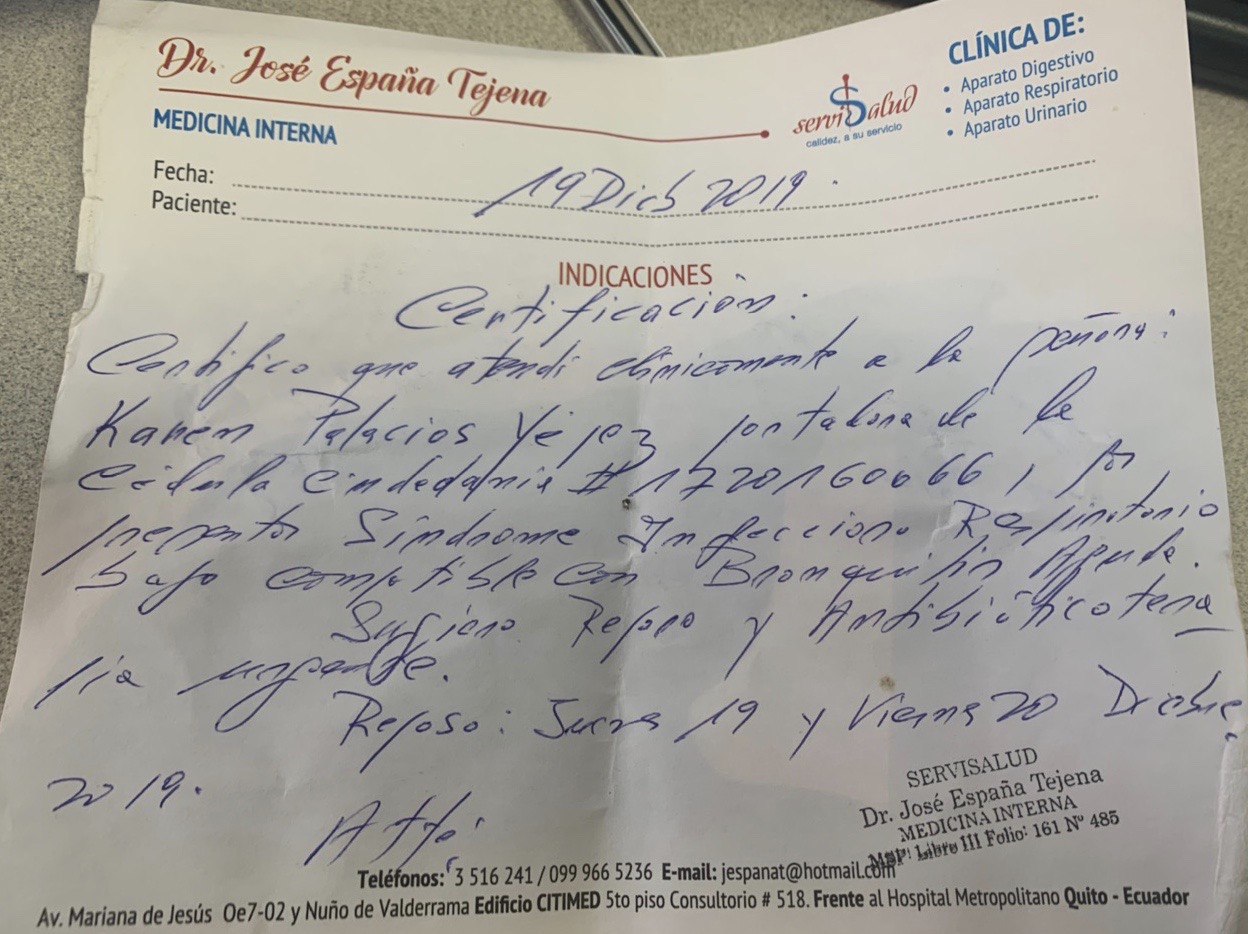 Dr. José España Tejena
MEDICINA INTERNA
serviSalud
calidez, a su servicio
CLÍNICA DE:
• Aparato Digestivo
• Aparato Respiratorio
• Aparato Urinario
Fecha: 19 Dicb 2019.
Paciente:
INDICACIONES
Certificación:
Certifico que atendí clinicamente a la señora:
Karem Palacios Yépez portadora de la
Cédula Ciudadanía # 1720160066, por
presentar Síndrome Infeccioso Respiratorio
bajo compatible con Bronquitis Aguda.
Sugiero Reposo y Antibióticotera
pia urgente.
Reposo: Jueves 19 y Viernes 20 Dicbre
2019.
Atte:
SERVISALUD
Dr. José España Tejena
MEDICINA INTERNA
MSP: Libro III Folio: 161 Nº 485
Teléfonos: 3 516 241 / 099 966 5236 E-mail: jespanat@hotmail.com
Av. Mariana de Jesús Oe7-02 y Nuño de Valderrama Edificio CITIMED 5to piso Consultorio # 518. Frente al Hospital Metropolitano Quito - Ecuador